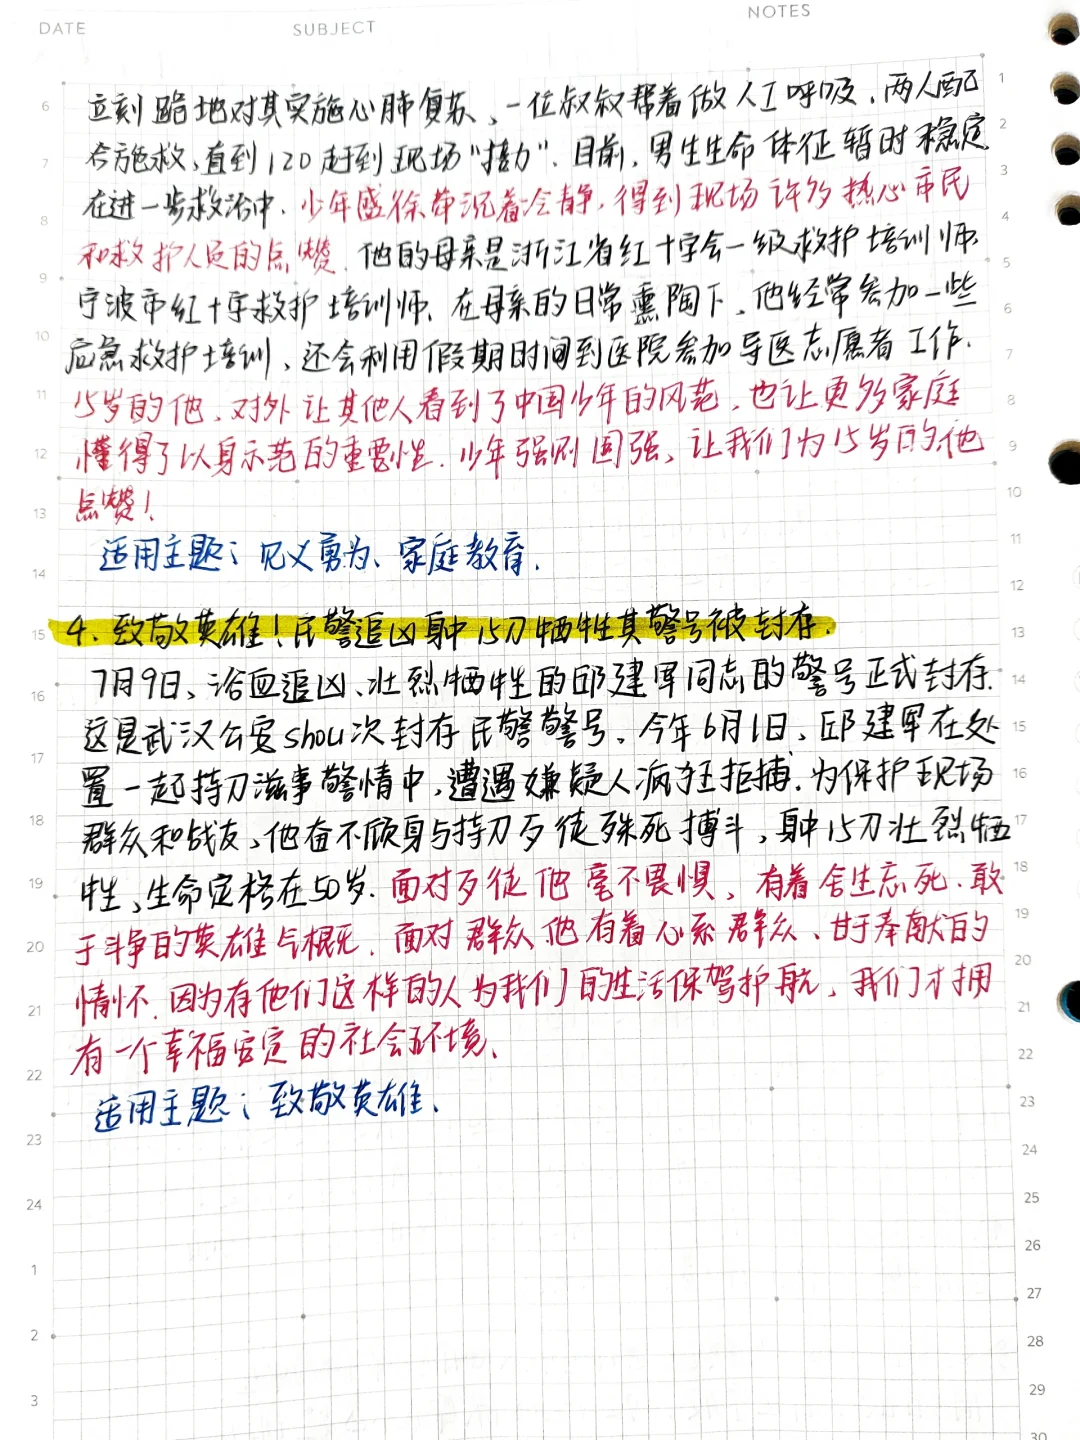 DATE
SUBJECT
NOTES
立刻跪地对其实施心肺复苏、一位叔叔帮着做人工呼吸、两人配
合施救、直到120赶到现场"接力"、目前、男生生命体征暂时稳定、
在进一步救治中、少年盛徐苹沉着冷静、得到现场许多热心市民
和救护人员的点赞、他的母亲是浙江省红十字会一级救护培训师、
宁波市红十字救护培训师、在母亲的日常熏陶下、他经常参加一些
应急救护培训、还会利用假期时间到医院参加导医志愿者工作.
15岁的他、对外让其他人看到了中国少年的风范、也让更多家庭
懂得了以身示范的重要性.少年强则国强、让我们为15岁的他
点赞!
适用主题:见义勇为、家庭教育.
4.致敬英雄!民警追凶身中15刀牺牲其警号被封存.
7月9日、浴血追凶、壮烈牺牲的邱建军同志的警号正式封存.
这是武汉公安shou次封存民警警号、今年6月1日、邱建军在处
置一起持刀滋事警情中,遭遇嫌疑人疯狂拒捕.为保护现场
群众和战友、他奋不顾身与持刀歹徒殊死搏斗,身中15刀壮烈牺
牲、生命定格在50岁.面对歹徒他毫不畏惧、有着舍生忘死、敢
于斗争的英雄气概、面对群众他有着心系群众、甘于奉献的
情怀.因为有他们这样的人为我们的生活保驾护航,我们才拥
有一个幸福安定的社会环境、
适用主题:致敬英雄、
6
7
8
9
10
11
12
13
14
15
16
17
18
19
20
21
22
23
24
1
2
3
1
2
3
4
5
6
7
8
9
10
11
12
13
14
15
16
17
18
19
20
21
22
23
24
25
26
27
28
29
30